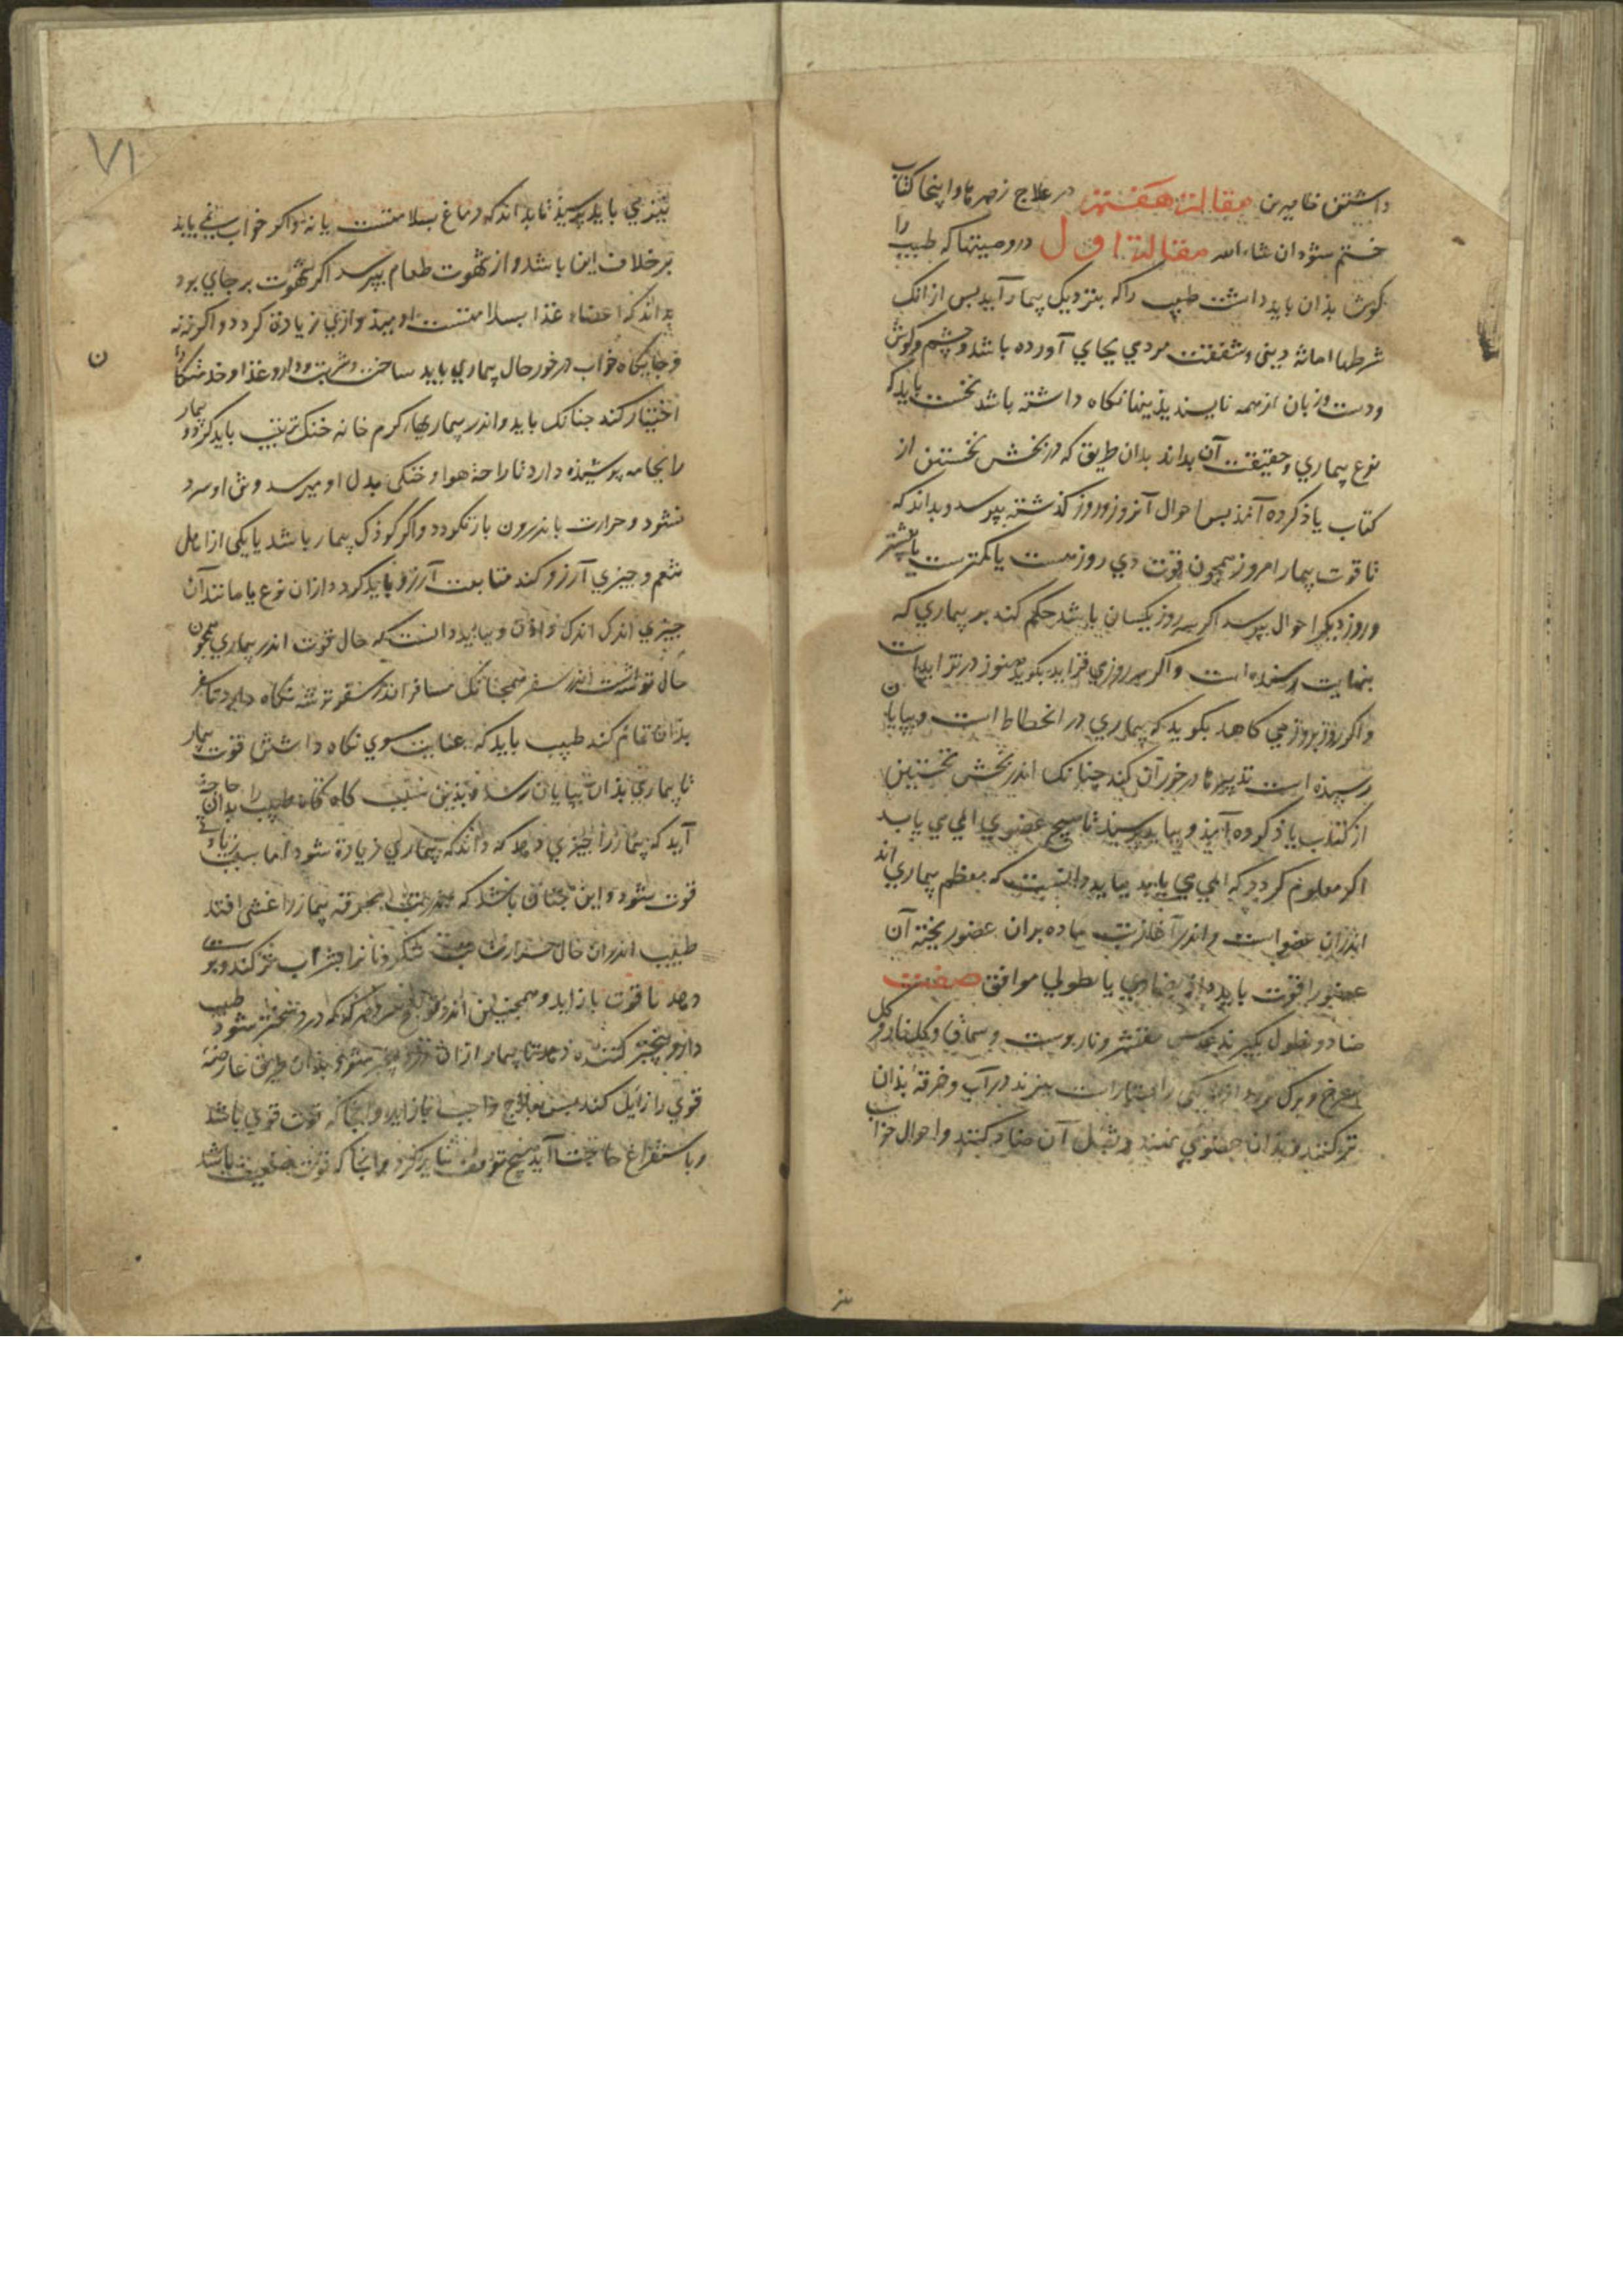 داشتن خامیرن مقالت هفتم در علاج زهرها و اینجا کتاب
ختم شود ان شاء الله مقالة اول در وصیتها که طبیب را
کوش بذان باید داشت طبیب را که بنزدیک بیمار آید بس از انک
شرطها امانة دینی و شفقت مردمی بجای آورده باشد و چشم و کوش
ودست و زبان از همه ناپسندیذیها نکاه داشته باشد نخست باید که
نوع بیماری و حقیقت آن بداند بدان طریق که در بخش نخستین از
کتاب یاذ کرده آمذ بس احوال آنروز و روز کذشته بپرسد و بداند که
تا قوت بیمار امروز همچون قوت دی روزست یا کمترست یا بیشتر
و روز دیکر احوال بپرسد اکر هر روز یکسان باشد حکم کند بر بیماری که
بنهایت رسیذه است و اکر هر روزی فزاید بکوید هنوز در تزایداست
و اکر روز بروز می کاهد بکوید که بیماری در انحطاط است و بپایان
رسیذه است تدبیرها در خور آن کند چنانک اندر بخش نخستین
از کتاب یاذ کرده آمذ و بباید پرسید تا هیچ عضوی المی می یابد
اکر معلوم کردد که المی می یابد بباید دانست که معظم بیماری اند
اندران عضو است و اندر آغازت ماده بران عضو ریخته آن
عضو را قوت باید داد بضمادی یا نطولی موافق صفت
ضماد و نطول بکیرند عدس مقشر و نار بوست و سماق و کلنار و کل
سرخ و برک مورد در آب و خرقه بذان
تر کنند و بذان عضوی نهند و بثفل آن ضماد کنند و احوال خواب
۷۱
نیزمی باید پرسیذ تا بداند که دماغ بسلامتست یا نه و اکر خواب نمی یابد
برخلاف این باشد و از شهوت طعام بپرسد اکر شهوت بر جای بود
بداند که اعضاء غذا بسلامتست اومیذواری زیادة کردد و اکر نه نه
و جایکاه خواب در خور حال بیماری باید ساخت و شربت و دارو و غذا و خدمتکار
ن
اختیار کند چنانک باید و اندر بیماریهاء کرم خانه خنک ترتیب باید کرد و بیمار
را بجامه پوشیذه دارد تا راحة هوا و خنکی بدل او میرسد و تن او سرد
نشود و حرارت باندرون بازنکردد و اکر کوذک بیمار باشد یا یکی از اهل
تنعم و چیزی آرزو کند متابعت آرزو باید کرد و از ان نوع یا مانند آن
چیزی اندک اندک دادن و بباید دانست که حال قوت اندر بیماری همچون
حال توشه است اندر سفر همچنانک مسافر اندر سفر توشه نکاه دارد تا سفر
بذان تمام کند طبیب باید که عنایت سوی نکاه داشتن قوت بیمار
تا بیماری بذان بپایان رسد و بذین سبب کاه کاه طبیب را بدان حاجت
آید که بیمار را چیزی دهد که داند که بیماری زیادة شود اما سبب زیادتی
قوت شود و این چنان باشد که محرقه بیمار را غشی افتد
طبیب اندران حال حرارت تب ننکرد نان را بشراب تر کند و بر
دهد تا قوت بازاید و همچنین اندر قولنج هر که که درد سخت شود طبیب
دارو بیخبر کننده دهد تا بیمار از ان درد بیخبر شود بذان طریق عارضه
قوی را زایل کند بس بعلاج واجب بازاید و آنجا که قوت قوی باشد
و باستفراغ حاجت آید هیچ توقف نباید کرد و انجا که قوت ضعیف باشد